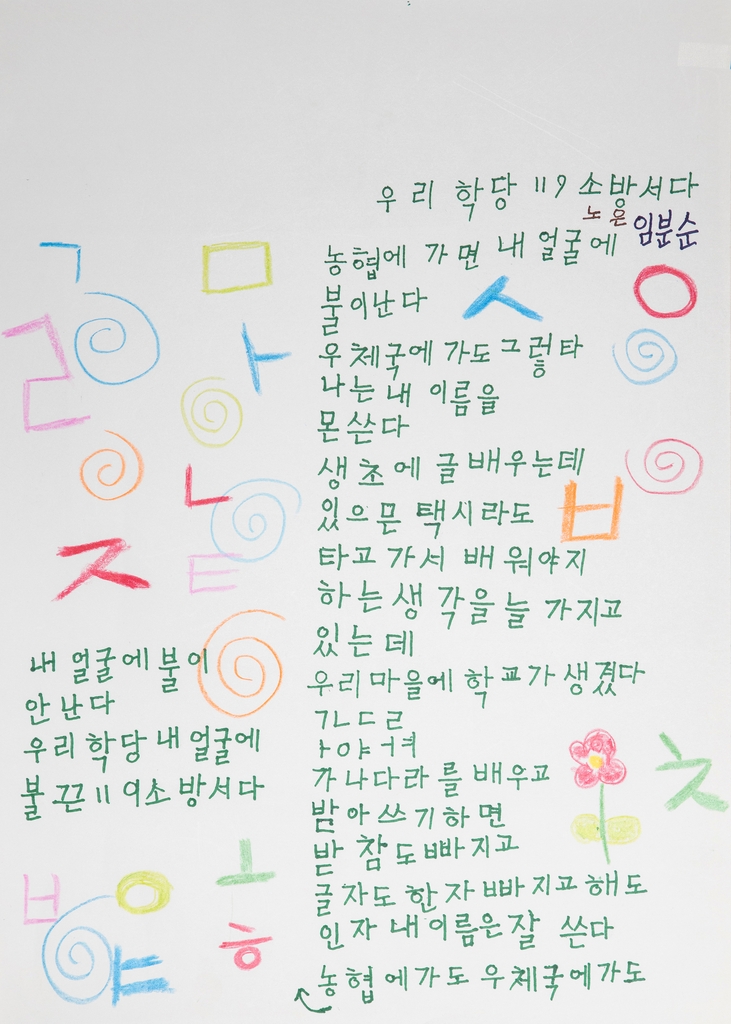 우리 학당 119 소방서다
노은 임분순
농협에 가면 내 얼굴에
불이난다
우체국에 가도 그렇타
나는 내 이름을
몬쓴다
생초에 글 배우는데
있으믄 택시라도
타고 가서 배워야지
하는 생각을 늘 가지고
있는데
우리마을에 학교가 생겼다
ㄱㄴㄷㄹ
ㅏ야ㅓㅕ
가나다라를 배우고
받아쓰기하면
받참도 빠지고
글자도 한자 빠지고 해도
인자 내이름은 잘 쓴다
농협에가도 우체국에가도
내 얼굴에 불이
안난다
우리 학당 내 얼굴에
불 끈 119소방서다
ㄱ
ㅁ
ㄹ
ㅏ
ㅅ
ㅇ
ㄴ
ㅂ
ㅈ
ㅌ
ㅊ
ㅂ
ㅇ
ㅗ
ㅎ